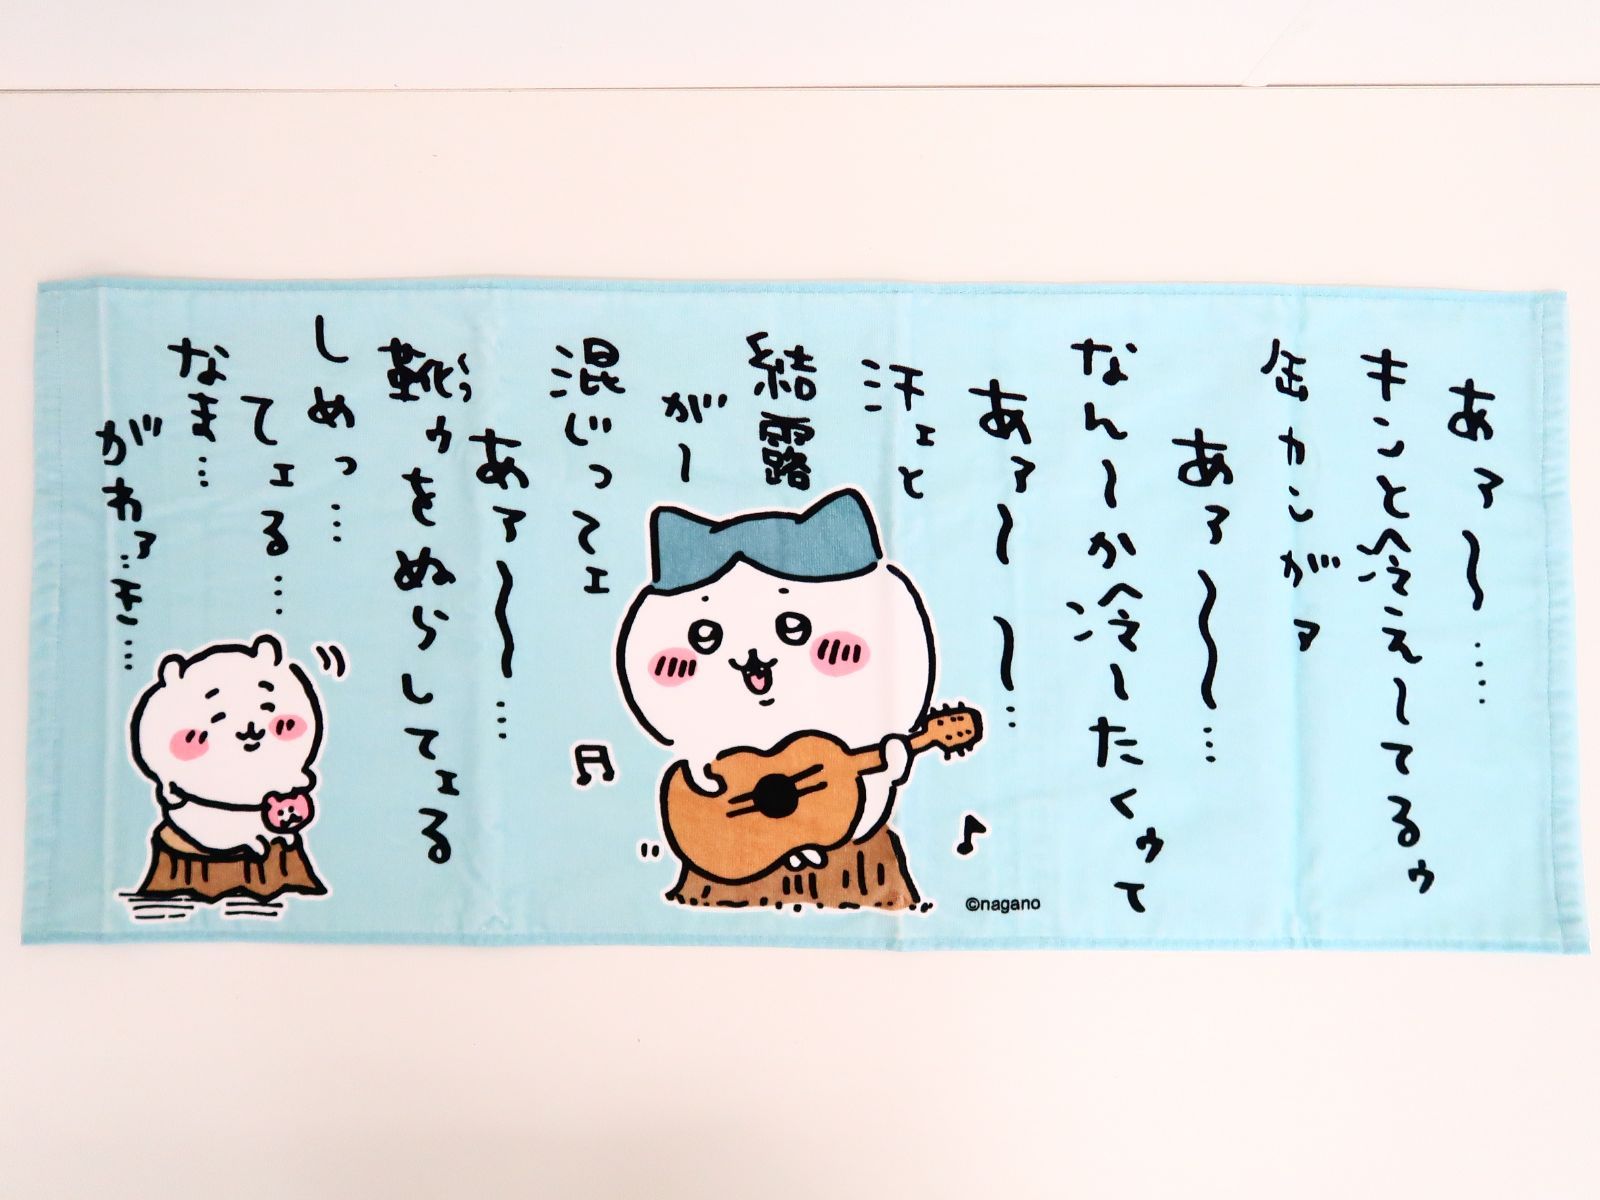 あァ〜……
キンと冷えーてるゥ
缶カンがァ
あァ〜〜…
なんーか冷ーたくゥて
あァ〜〜…
汗ェと
結露
がー
混じってェ
あァ〜〜…
靴っゥをぬらしてェる
しめっ…
てェる…
なま…
がわァ…き…
©nagano